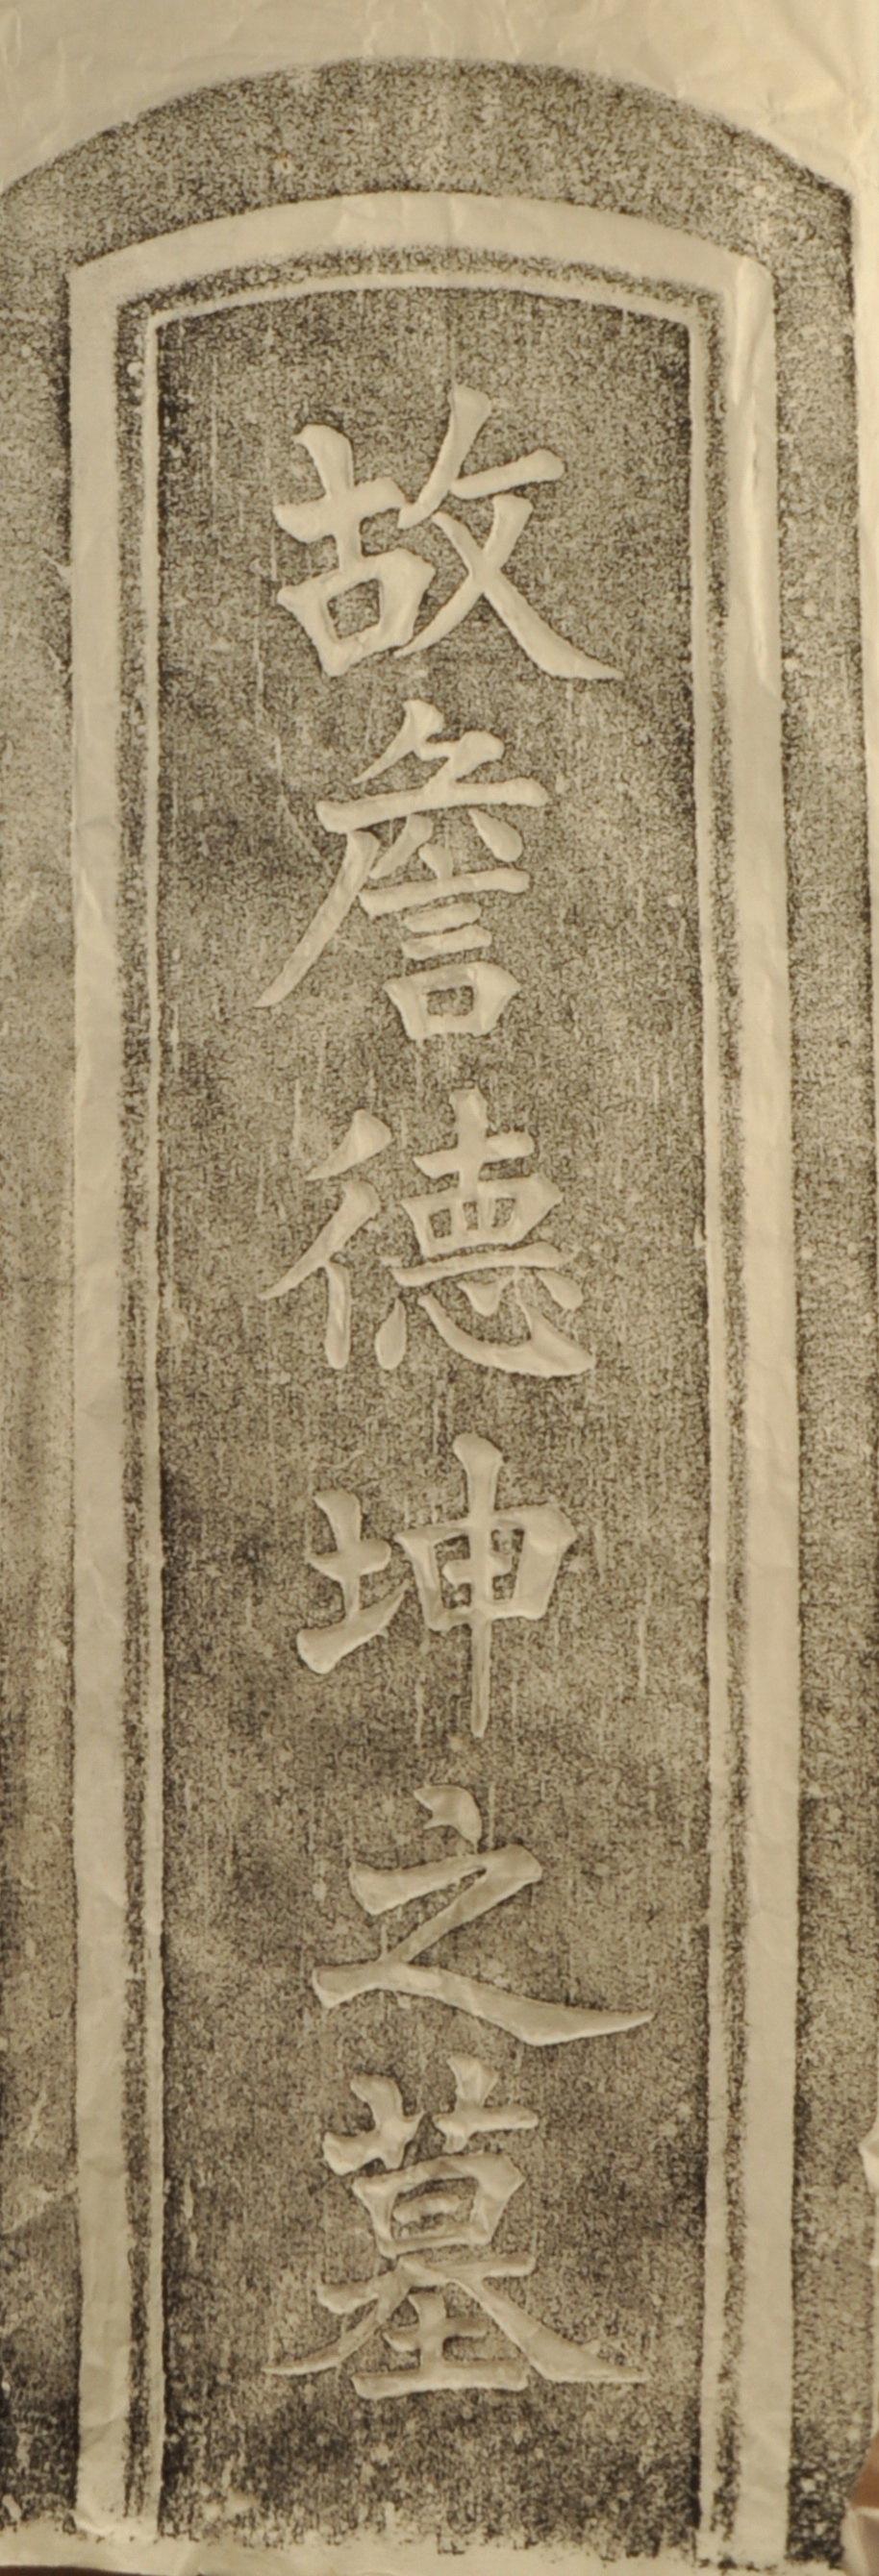 故詹德坤之墓